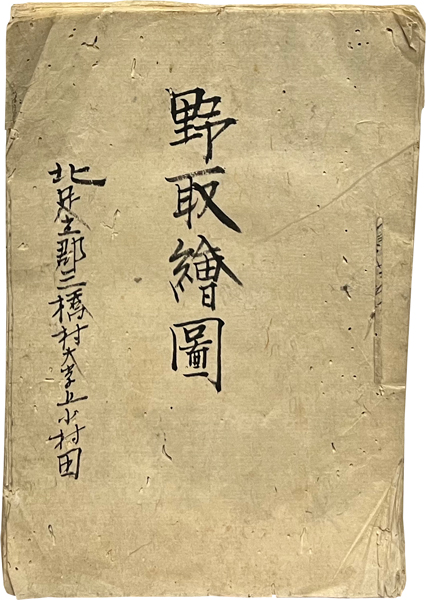 野取繪圖
北足立郡三橋村大字上小村田